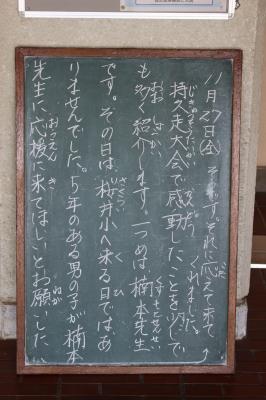 11月27日(金) そうです。それに応えて来て
くれました。
持久走大会で感動したことを少しで
も多く紹介します。一つめは楠本先生
です。その日は桜井小へ来る日ではあ
りませんでした。5年のある男の子が楠本
先生に応援に来てほしいとお願いした